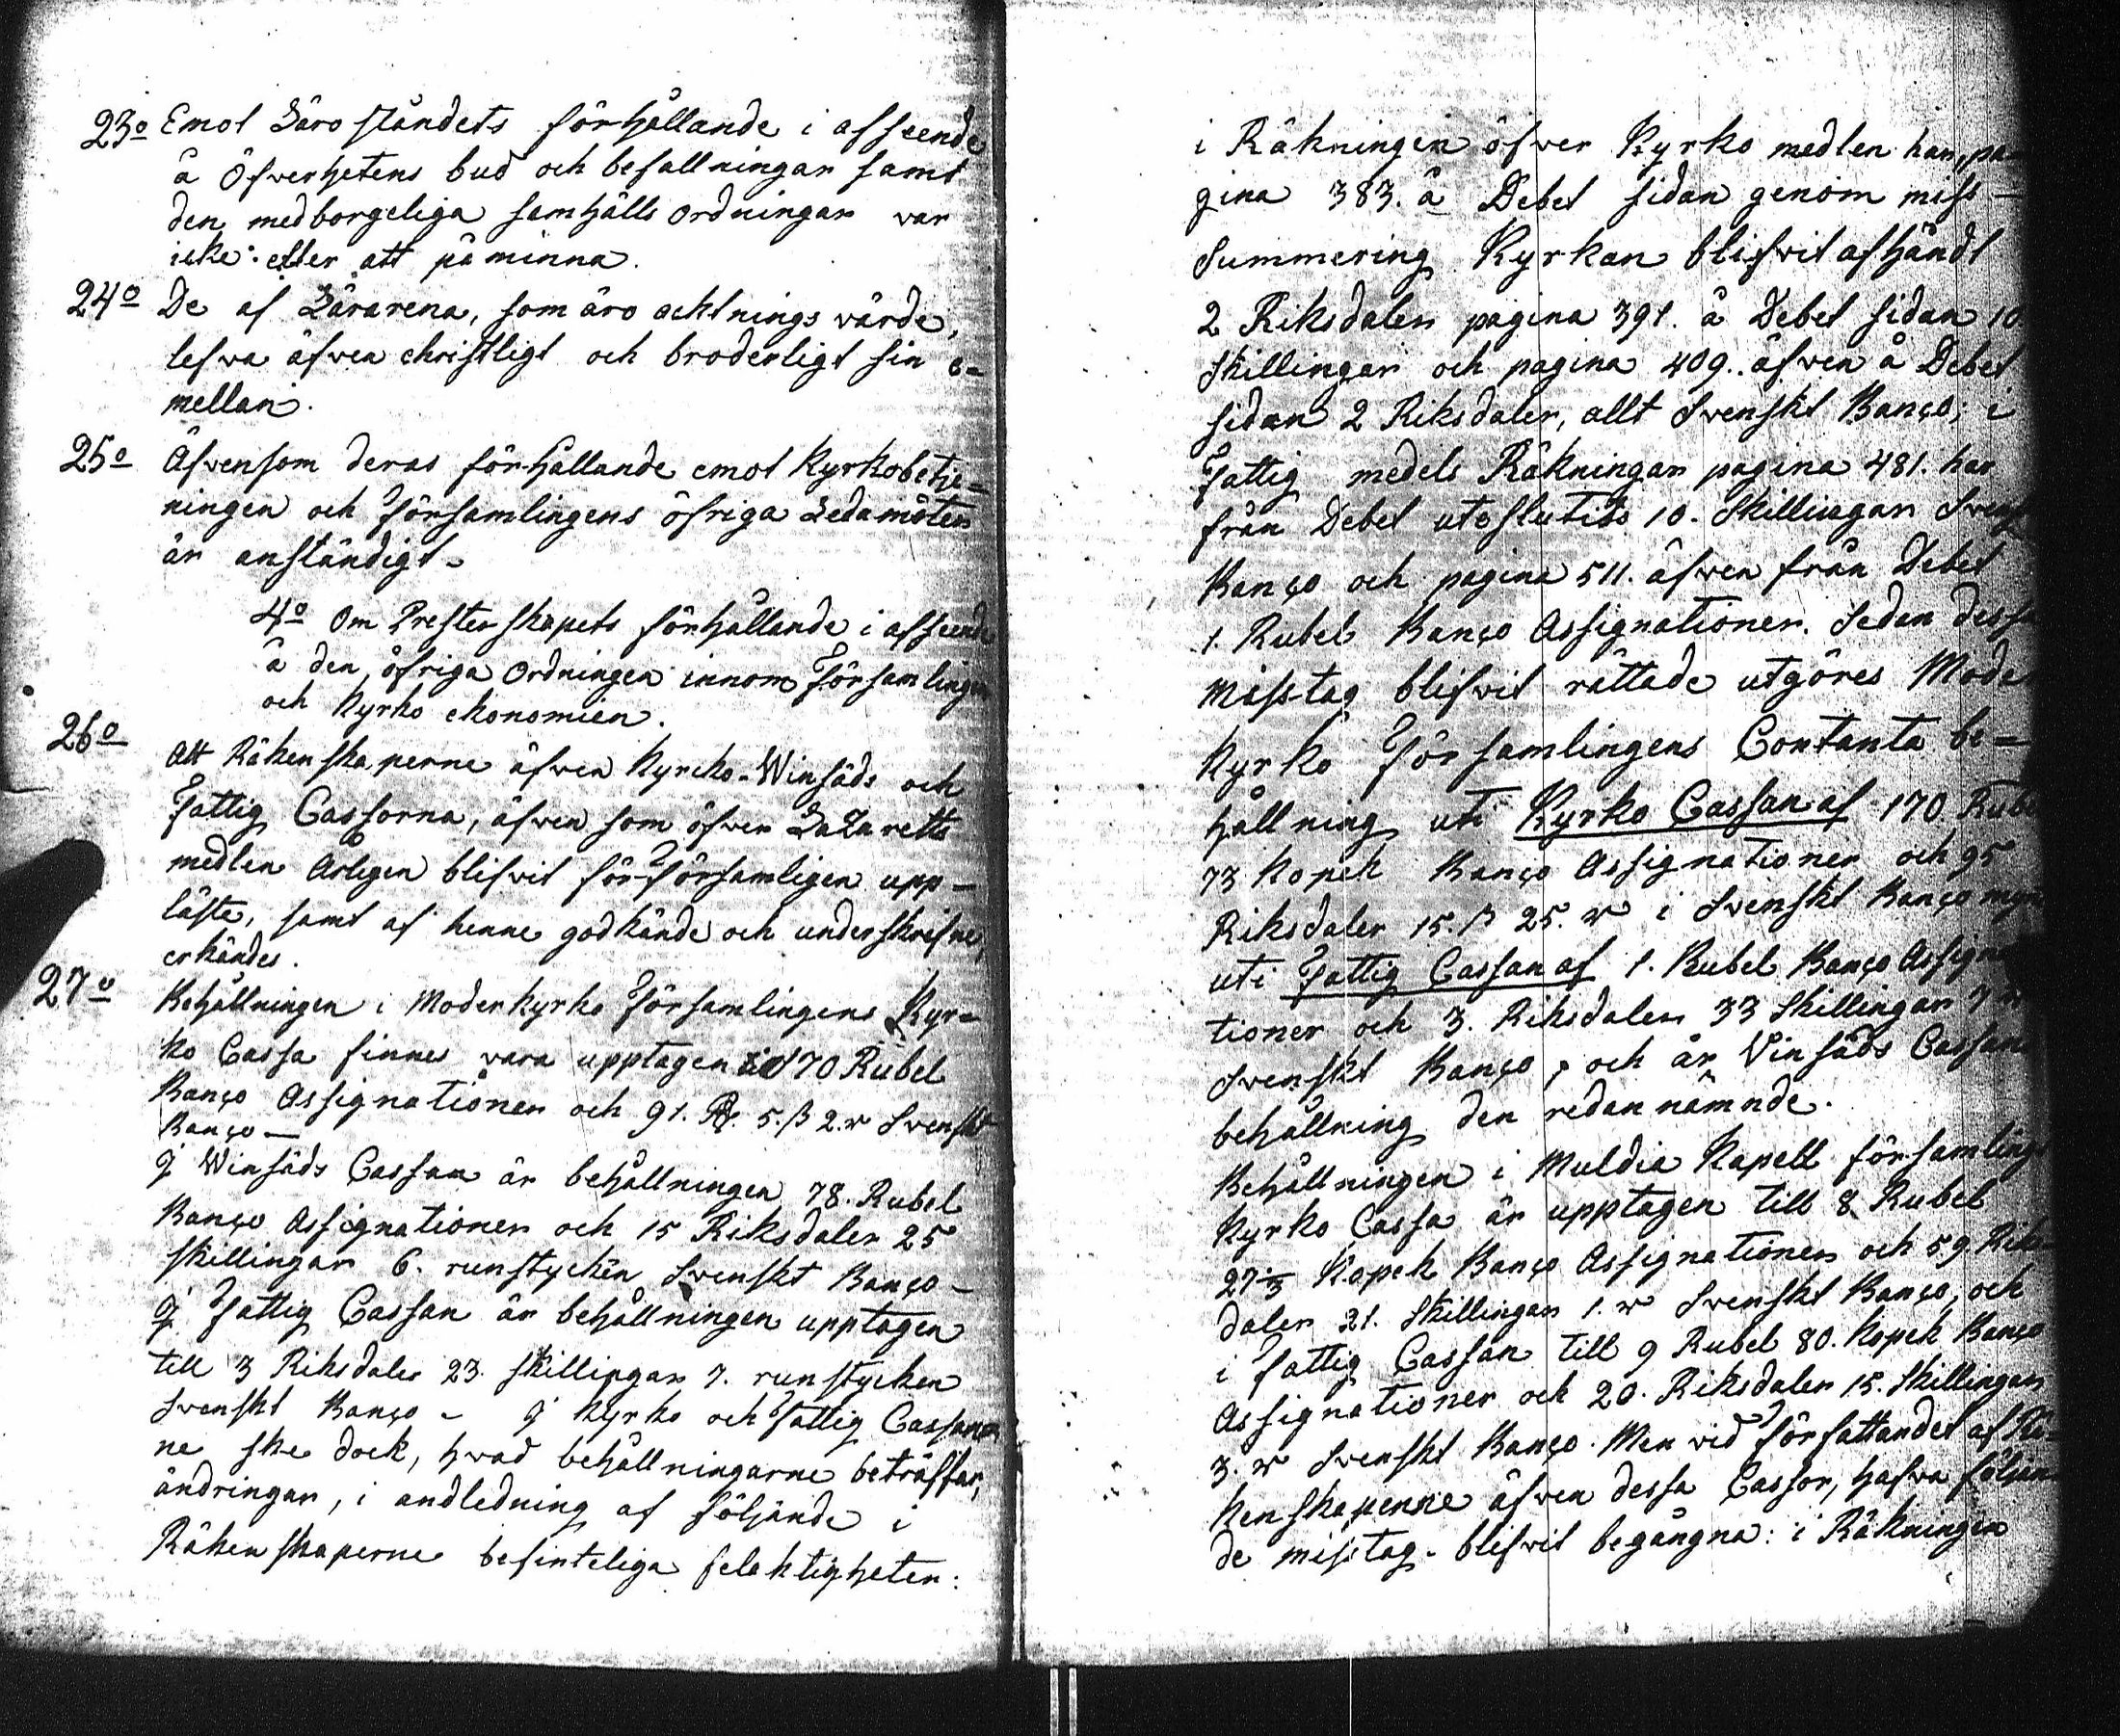 23o Emot Läro ståndets förhållande i afseende
å Öfverhetens bud och befallningar samt
den medborgeliga samhälls ordningar var
icke: eller att påminna.
24o De af Lärarena, som äro aktnings värde,
lefva äfven christligt och broderligt sin e-
mellan.
25o Äfvensom deras förhållande emot Kyrkobetje-
ningen och Församlingens öfriga Ledamöten
är anständigt.
4o Om Presterskapets förhållande i afseende
å den öfriga Ordningen innom Församlingen
och Kyrko ekonomien.
26o Att Räkenskaperne äfven Kyrcko-Winsäds och
Fattig Cassorna, äfven som öfver Lazaretts
medlen Årligen blifvit för Församligen upp-
läste, samt af henne godkände och underskrifne,
erkändes.
27o Behållningen i Moderkyrko Församlingens Kyr-
ko Cassa finnes vara upptagen till 170 Rubel
Banço Assignationer och 91. Rd. 5. ß 2. r Svenskt
Banço —
J Winsäds Cassan är behållningen 78. Rubel
Banço Assignationer och 15 Riksdaler 25
skillingar 6. runstycken Svenskt Banço —
J Fattig Cassan är behållningen upptagen
till 3 Riksdaler 23. Skillingar 7. runstycken
Svenskt Banço - J Kyrko och Fattig Cassor
ne ske dock, hvad behållningarne beträffar,
ändringar, i andledning af följande i
Räkenskaperne befinteliga felaktigheter:
i Räkningen öfver Kyrko medlen har, pa-
gina 383. å Debet sidan genom miss-
summering Kyrkan blifvit afhändt
2 Riksdaler pagina 391. å Debet sidan 10
Skillingar och pagina 409. äfven å Debet
sidan 2 Riksdaler, allt Svenskt Banço; i
Fattig medels Räkningar pagina 481. har
från Debet uteslutits 10. Skillingar Svenskt
Banço och pagina 511. äfven från Debet
1. Rubel Banço Assignationer. Sedan dessa
misstag blifvit rättade utgöres Moder
Kyrko Församlingens Contanta be-
hållning uti Kyrko Cassan af 170 Rubel
73 Kopek Banço Assignationer och 95
Riksdaler 15. ß 25. r i Svenskt Banço mynt
uti Fattig Cassan af 1. Rubel Banço Assigna
tioner och 3. Riksdaler 33 Skillingar 7 r
Svenskt Banço, och är Vinsäds Cassans
behållning den redan nämnde.
Behållningen i Muldia Kapell församlings
Kyrko Cassa är upptagen till 8 Rubel
27 1/3 Kopek Banço Assignationer och 59 Riks-
daler 21. Skillingar 1. r Svenskt Banço, och
i Fattig Cassan till 9 Rubel 80. Kopek Banço
Assignationer och 20. Riksdaler 15. Skillingar
3. r Svenskt Banço. Men vid Författandet af Rä-
kenskaperne äfven dessa Cassor, hafva följan-
de misstag blifvit begångna: i Räkningen